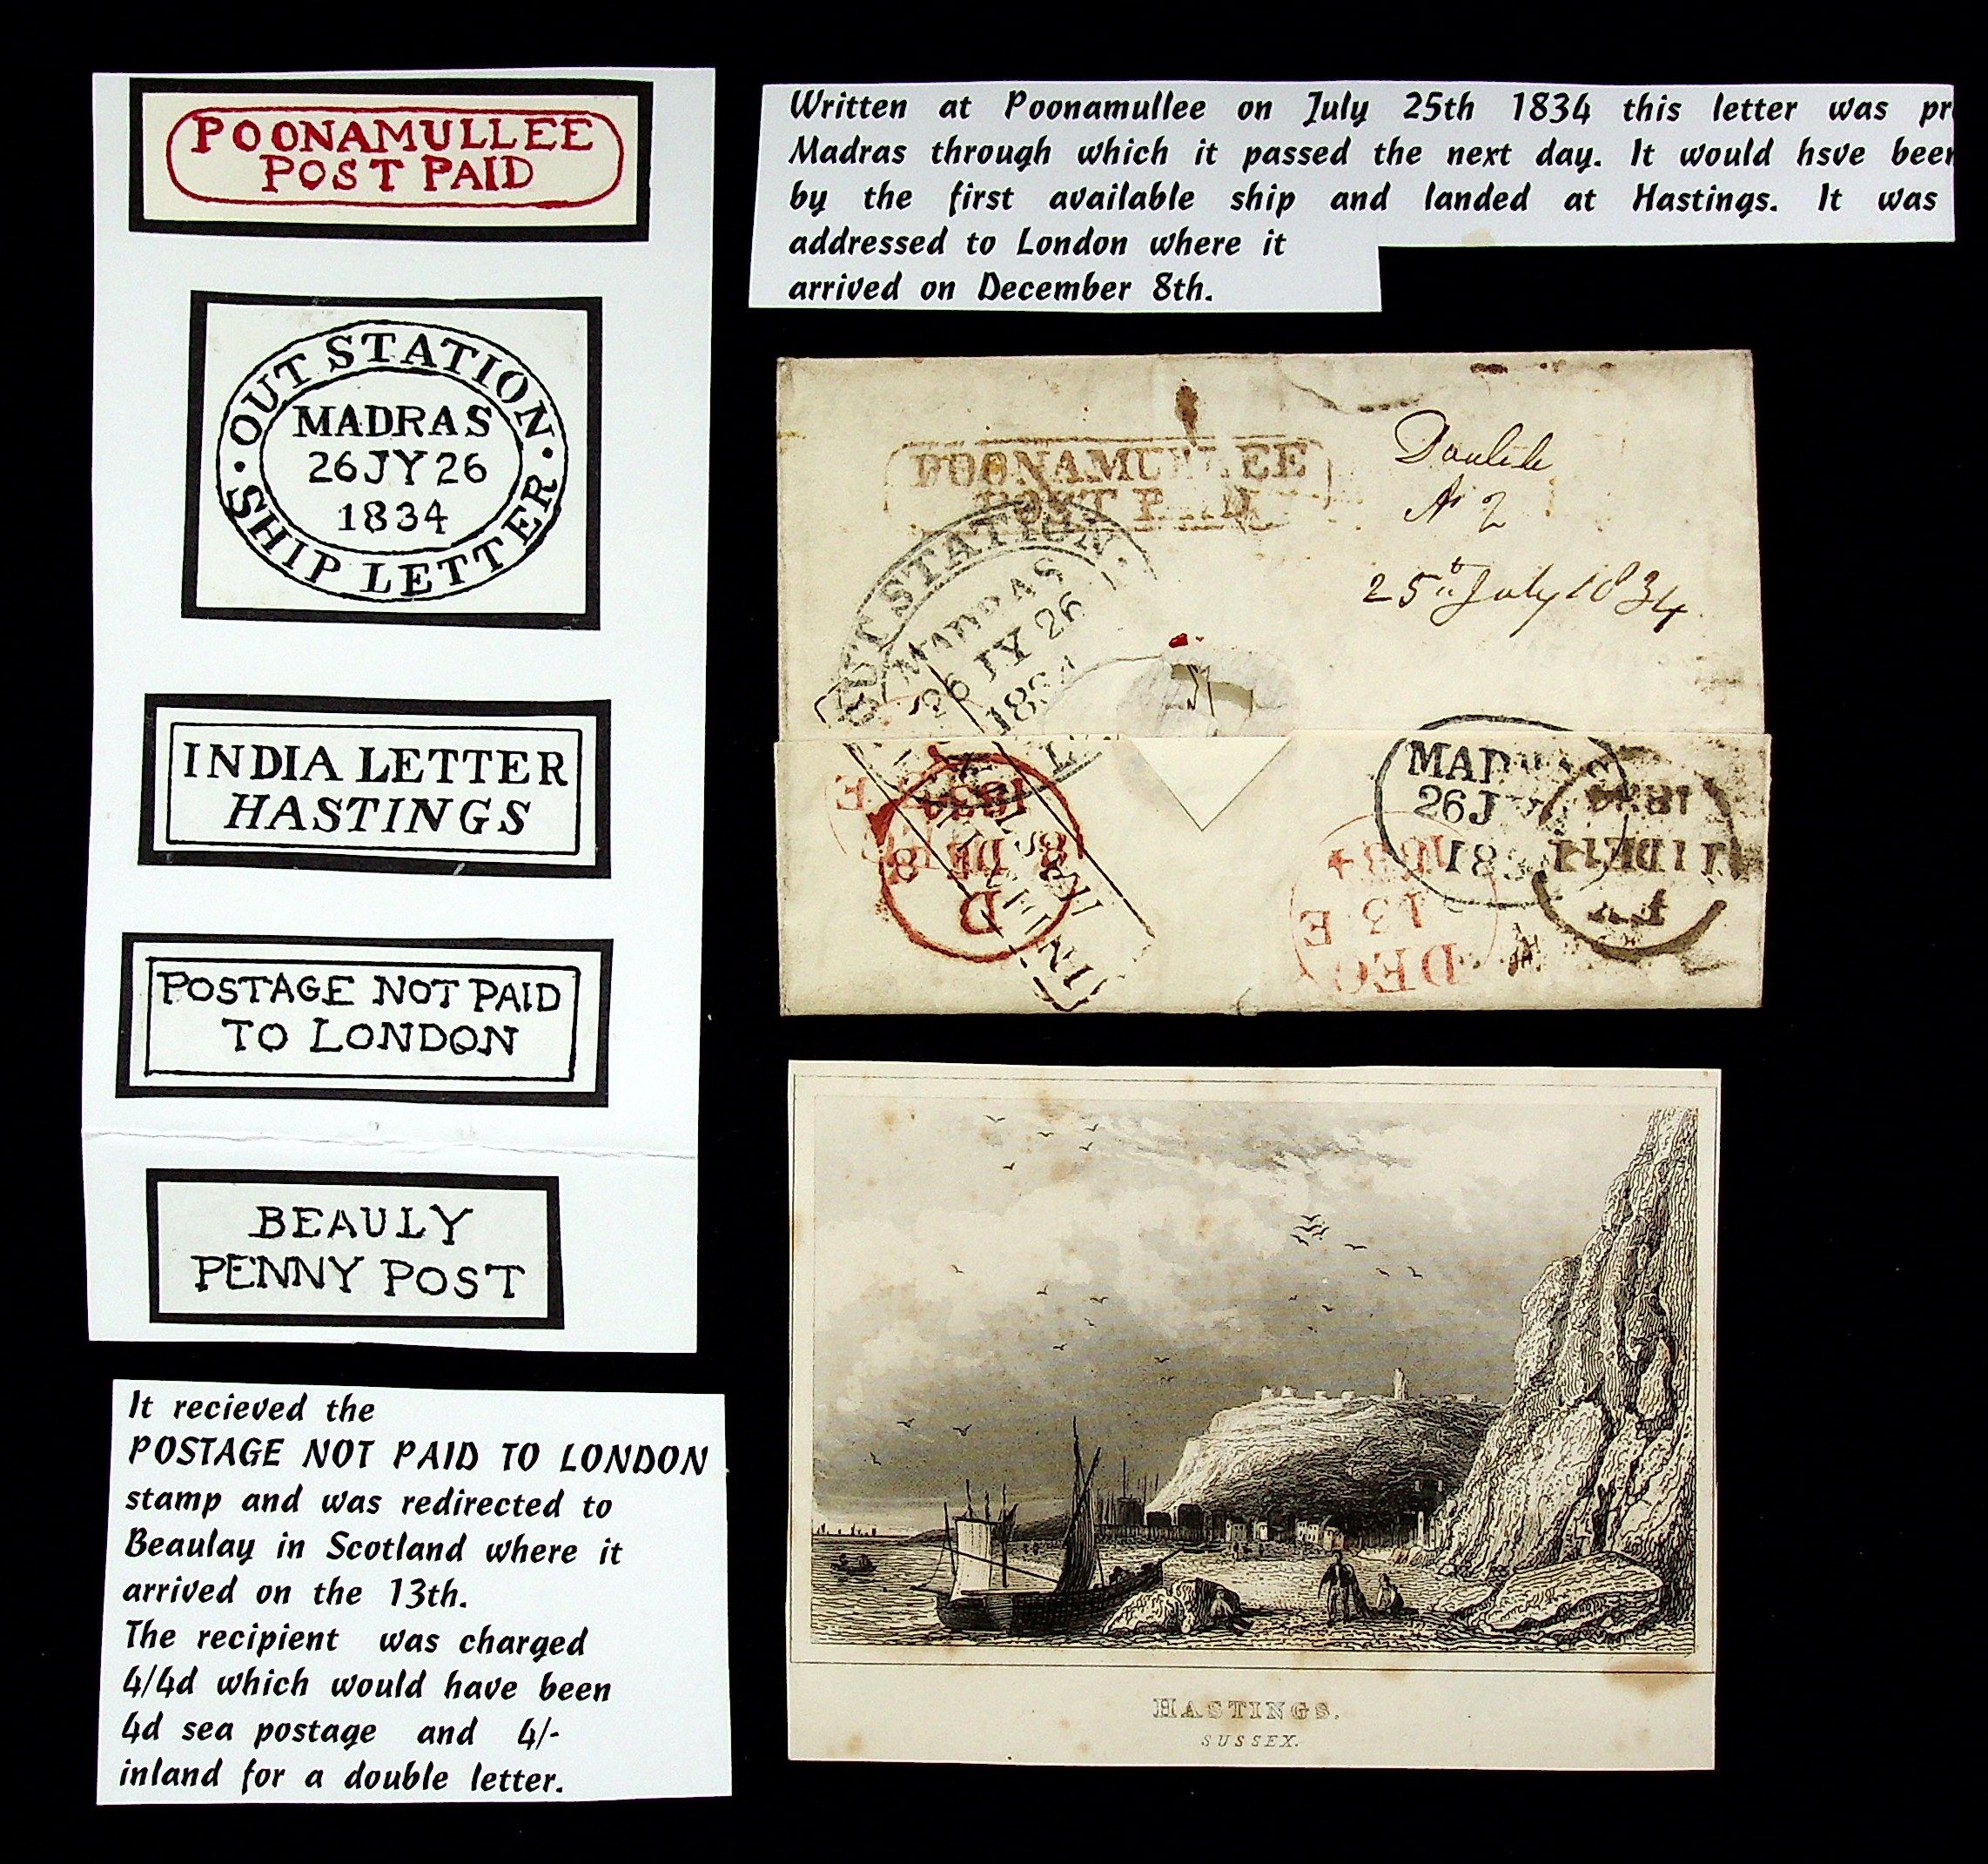 POONAMULLEE
POST PAID
OUT STATION
MADRAS
26 JY 26
1834
SHIP LETTER
INDIA LETTER
HASTINGS
POSTAGE NOT PAID
TO LONDON
BEAULY
PENNY POST
It recieved the
POSTAGE NOT PAID TO LONDON
stamp and was redirected to
Beaulay in Scotland where it
arrived on the 13th.
The recipient was charged
4/4d which would have been
4d sea postage and 4/-
inland for a double letter.
Written at Poonamullee on July 25th 1834 this letter was pr
Madras through which it passed the next day. It would hsve been
by the first available ship and landed at Hastings. It was
addressed to London where it
arrived on December 8th.
POONAMULLEE
POST PAID
OUT STATION
MADRAS
26 JY 26
1834
25th July 1834
MADRAS
26 JY
183
1834
8 DE 8
D
DEC
13 E
1834
HASTINGS.
SUSSEX.